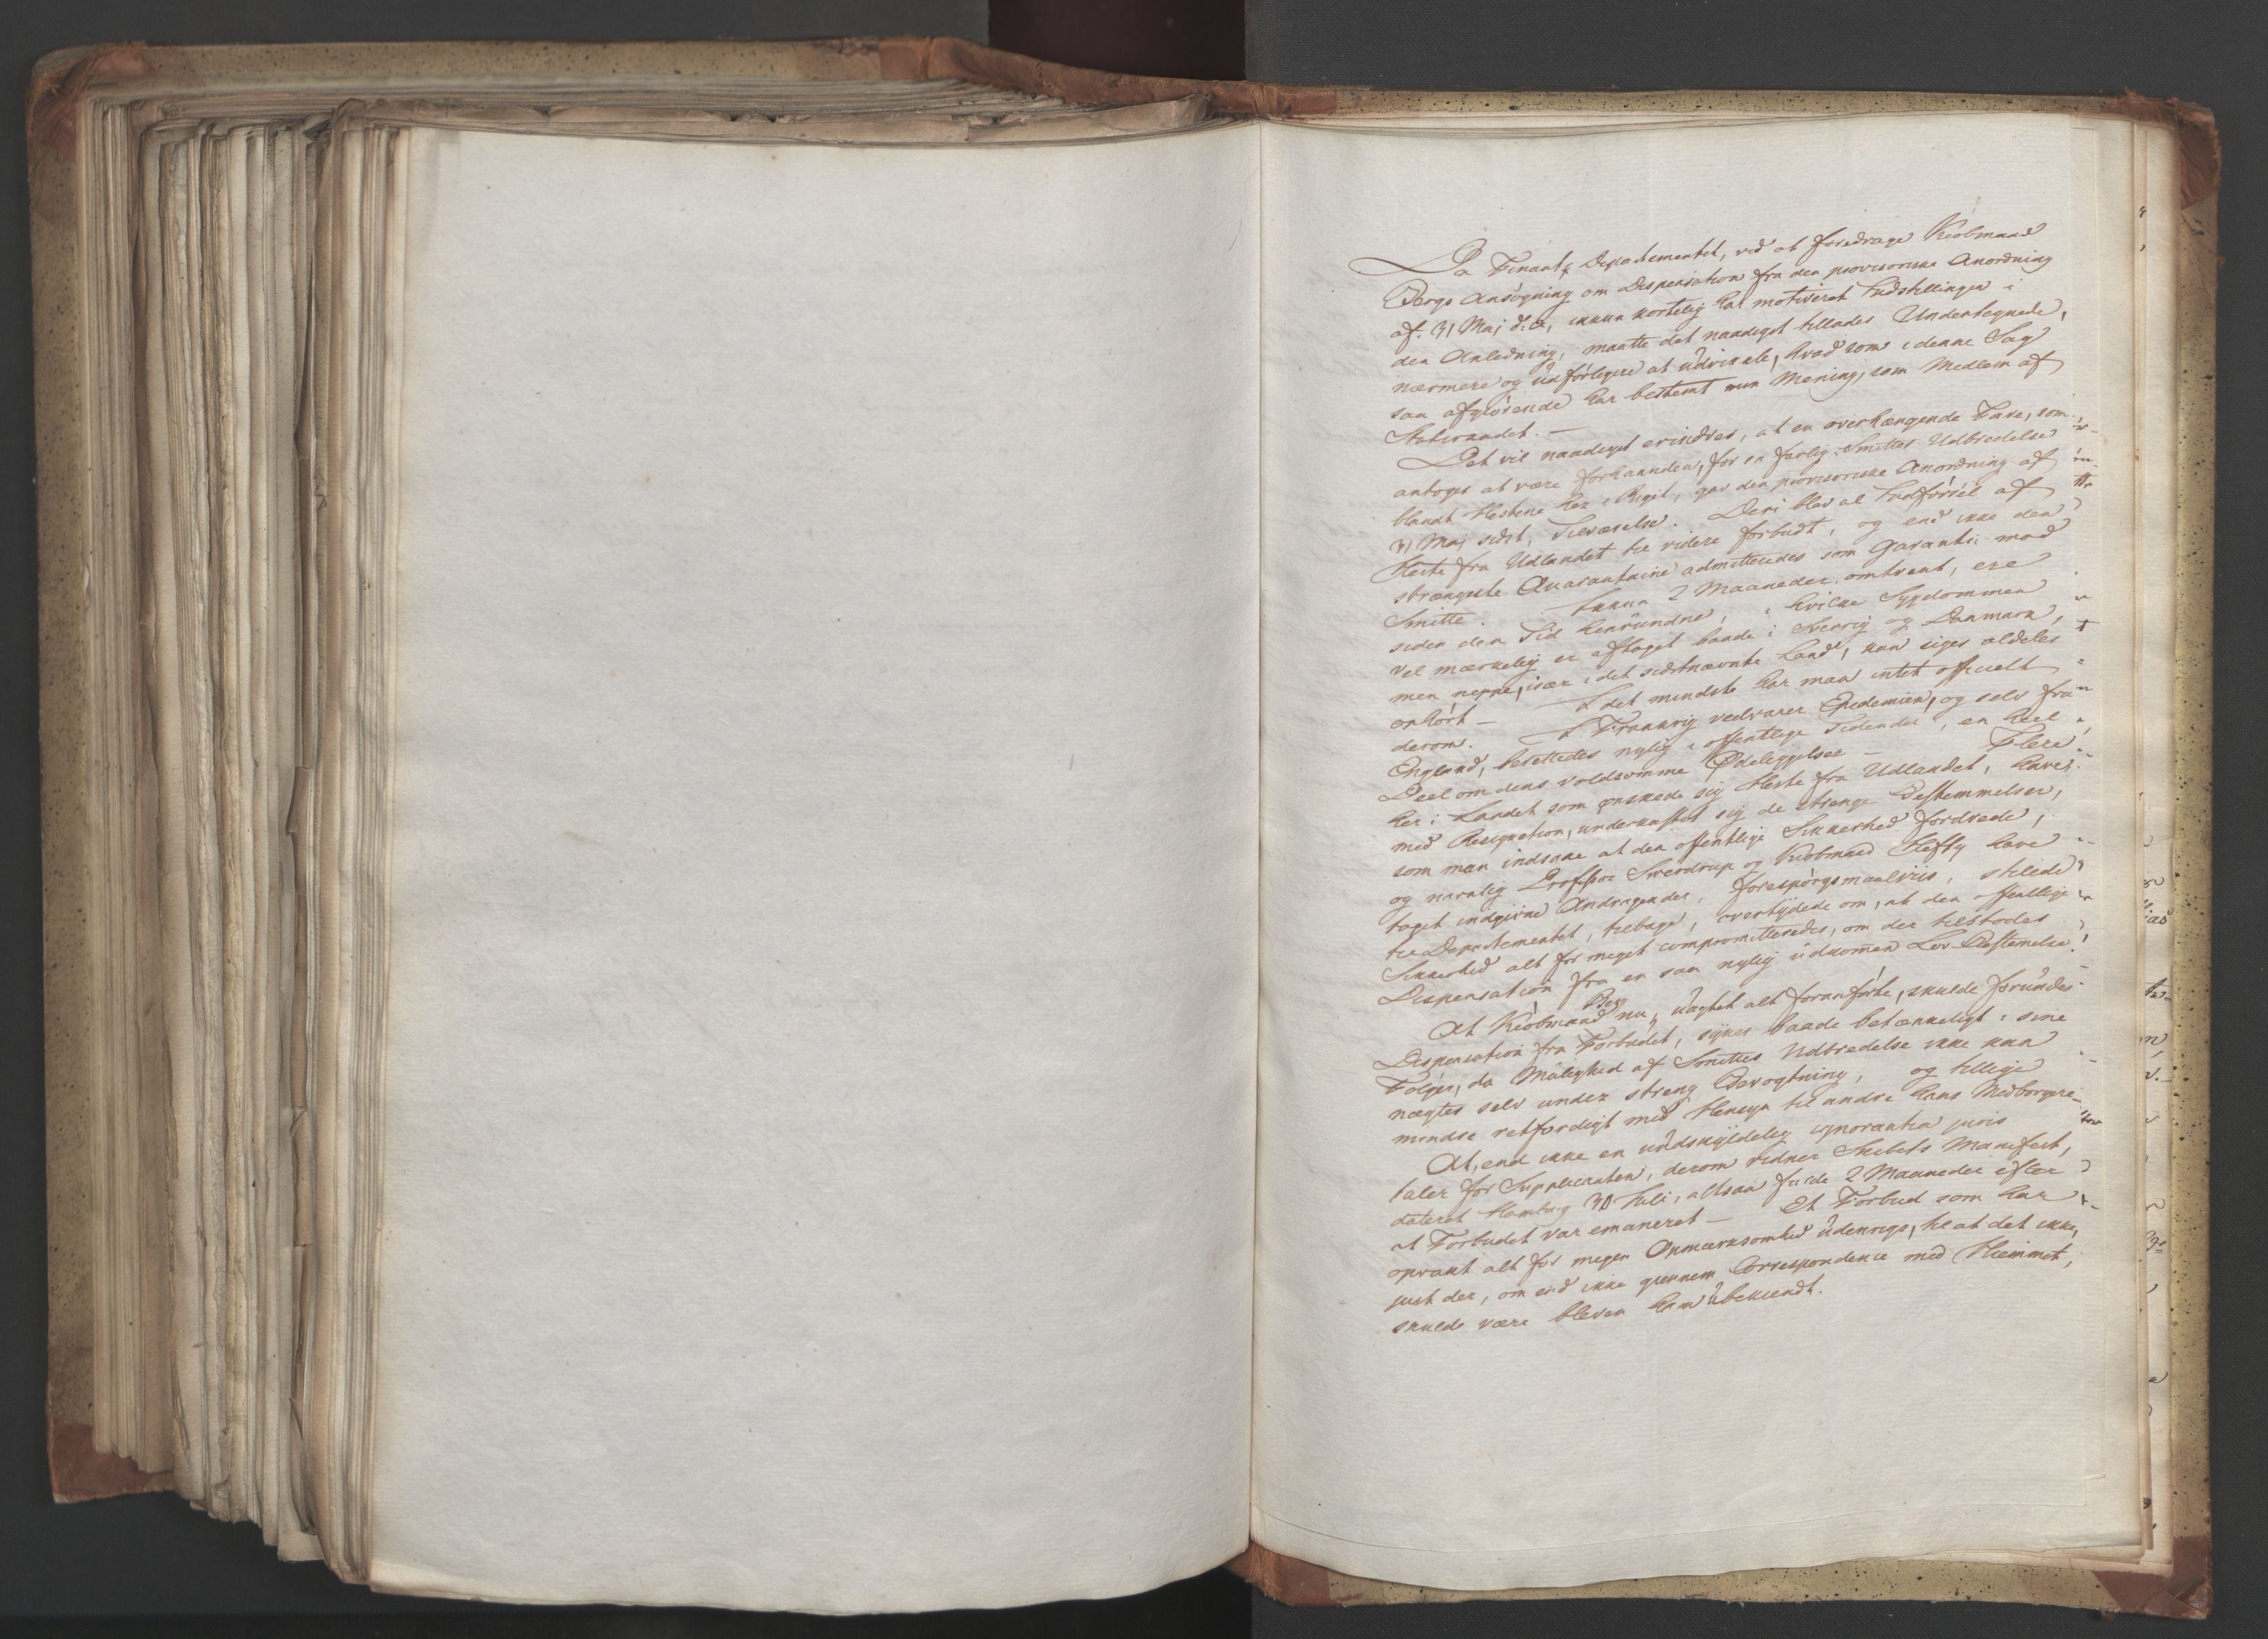 Da Finants Departementet, ved at foredrage Kiøbmand
Bergs Ansøgning om Dispensation fra den provisoriske Anordning
af. 31 Maj d: A, ikkun kortelig har motiveret Indstillingen i
den Anledning, maatte det naadigst tillades Undertegnede,
nærmere og udførligere at udvikle, hvad som i denne Sag
saa afgiørende har bestemt min Mening, som Medlem af
Statsraadet. —
Det vil naadigst erindres, at en overhængende Fare, som
antoges at være forhaanden, for en farlig Smittes Udbredelse
blandt Hestene her i Riget, gav den provisoriske Anordning af
31 Maj sidst, Tilværelse. Deri blev al Indførsel af
Heste fra Udlandet til videre forbudt, og end ikke den
strængeste Quarantaine admitteredes som Garantie mod
Smitte. Ikkun 2 Maaneder omtrent, ere
siden den Tid henrundne, i hvilke Sygdommen
vel mærkelig er aftaget baade i Sverrig og Danmark,
men neppe, især i det sidstnævnte Land, kan siges aldeles
ophørt — I det mindste har man intet officielt
derom. I Frankrig vedvarer Epidemien, og selv fra
England, berettedes nylig i offentlige Tidender, en heel
Deel om dens voldsomme Ødeleggelser — Flere
her i Landet som ønskede sig Heste fra Udlandet, have,
med Resignation, underkastet sig de strenge Bestemmelser,
som man indsaae at den offentlige Sikkerhed fordrede,
og navnlig Professor Swerdrup og Kiøbmand Hefty have
taget indgivne Andragender, forespørgsmaalviis, stilede
til Departementet, tilbage, overtydede om, at den offentlige
Sikkerhed alt for meget compromitteredes, om der tilstodes
Dispensation fra en saa nylig udkommen Lov-Bestemelse.
At Kiøbmand Berg nu, uagtet alt foranførte, skulde forundes
Dispensation fra Forbudet, synes baade betænkeligt i sine
Følger, da Mulighed af Smittes Udbredelse ikke kan
nægtes selv under streng Bevogtning, og tillige
mindre retfærdigt med Hensyn til andre hans Medborgere
At, end ikke en undskyldelig ignorantia juris
taler for Supplicanten, derom vidner Skibets Manifest,
dateret Hamburg 30 Juli, altsaa fulde 2 Maaneder efter
at Forbudet var emaneret — Et Forbud som har
opvakt alt for megen Opmærksomhed udenrigs, til at det ikke,
just der, om end ikke giennem Correspondence med Hiemmet,
skulde være bleven ham ubekiendt.